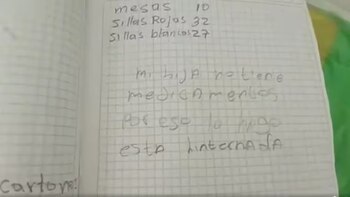 mesas 10
Sillas Rojas 32
Sillas blancas 27
mi hijA no tiene
medicAmentos
Por eso lo hago
estA InternAdA
cartone